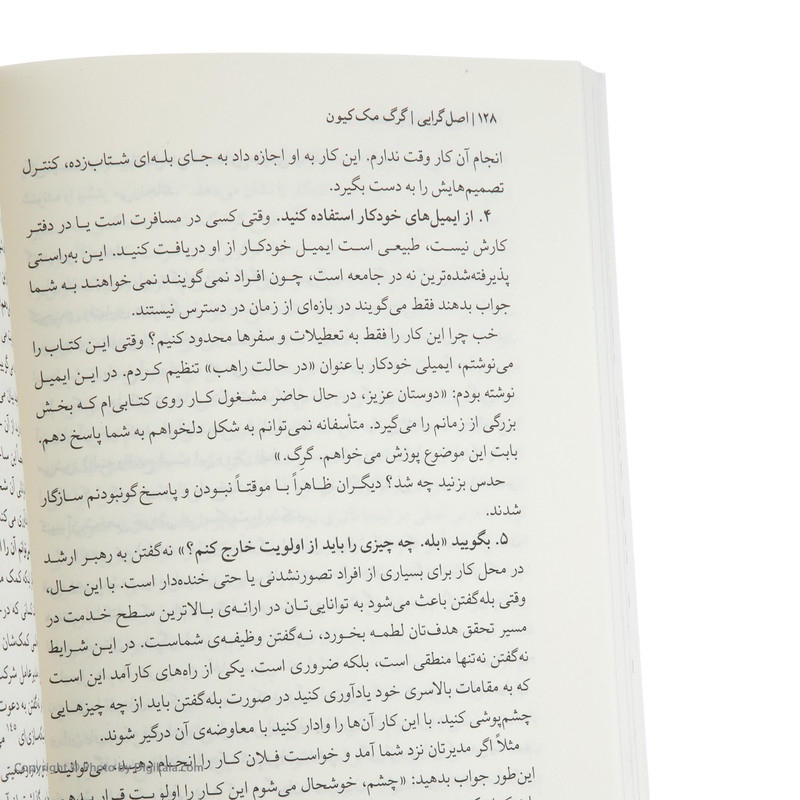 ۱۲۸ | اصل‌گرایی | گرگ مک‌کیون
انجام آن کار وقت ندارم. این کار به او اجازه داد به جای بله‌ای شتاب‌زده، کنترل
تصمیم‌هایش را به دست بگیرد.
۴. از ایمیل‌های خودکار استفاده کنید. وقتی کسی در مسافرت است یا در دفتر
کارش نیست، طبیعی است ایمیل خودکار از او دریافت کنید. این به‌راستی
پذیرفته‌شده‌ترین نه در جامعه است، چون افراد نمی‌گویند نمی‌خواهند به شما
جواب بدهند فقط می‌گویند در بازه‌ای از زمان در دسترس نیستند.
خب چرا این کار را فقط به تعطیلات و سفرها محدود کنیم؟ وقتی این کتاب را
می‌نوشتم، ایمیلی خودکار با عنوان «در حالت راهب» تنظیم کردم. در این ایمیل
نوشته بودم: «دوستان عزیز، در حال حاضر مشغول کار روی کتابی‌ام که بخش
بزرگی از زمانم را می‌گیرد. متأسفانه نمی‌توانم به شکل دلخواهم به شما پاسخ دهم.
بابت این موضوع پوزش می‌خواهم. گرِگ.»
حدس بزنید چه شد؟ دیگران ظاهراً با موقتاً نبودن و پاسخ‌گونبودنم سازگار
شدند.
۵. بگویید «بله. چه چیزی را باید از اولویت خارج کنم؟» نه‌گفتن به رهبر ارشد
در محل کار برای بسیاری از افراد تصورنشدنی یا حتی خنده‌دار است. با این حال،
وقتی بله‌گفتن باعث می‌شود به توانایی‌تان در ارائه‌ی بالاترین سطح خدمت در
مسیر تحقق هدف‌تان لطمه بخورد، نه‌گفتن وظیفه‌ی شماست. در این شرایط
نه‌گفتن نه‌تنها منطقی است، بلکه ضروری است. یکی از راه‌های کارآمد این است
که به مقامات بالاسری خود یادآوری کنید در صورت بله‌گفتن باید از چه چیزهایی
چشم‌پوشی کنید. با این کار آن‌ها را وادار کنید با معاوضه‌ی آن درگیر شوند.
مثلاً اگر مدیرتان نزد شما آمد و خواست فلان کار را انجام دهید، می‌توانید
این‌طور جواب بدهید: «چشم، خوشحال می‌شوم این کار را اولویت قرار بدهم
Copyright © Photo by Digikala.com